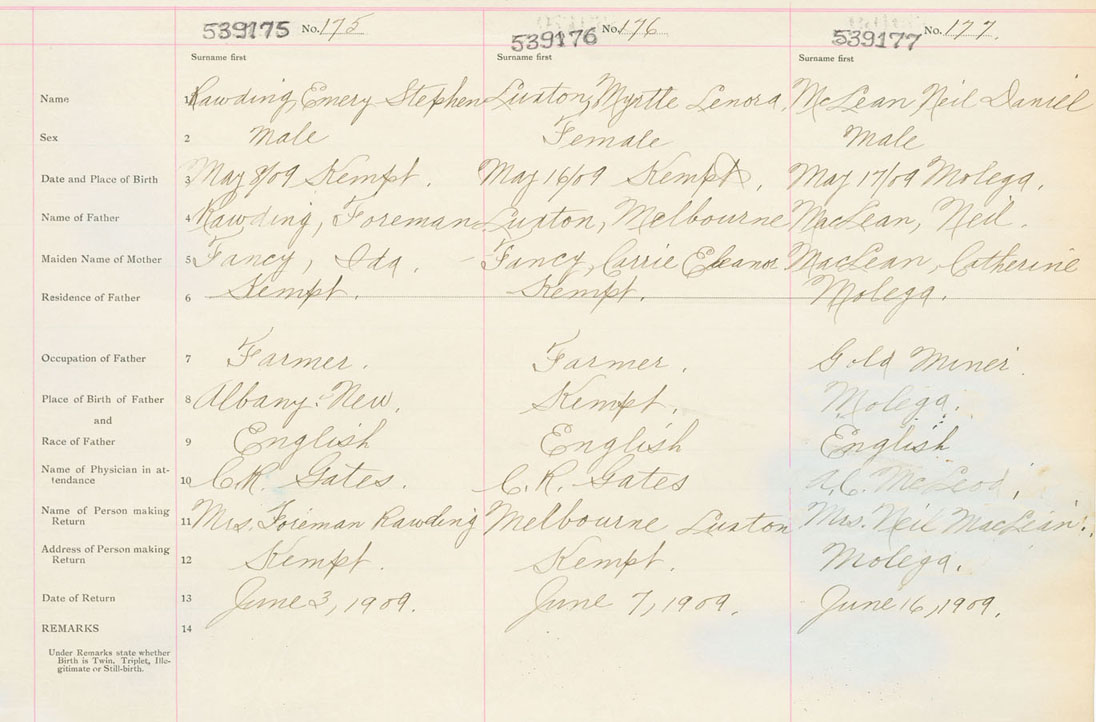 539175 No. 175 539176 No. 176 539177 No. 177.
Surname first Surname first Surname first
Name 1 Rawding, Emery Stephen Luxton, Myrtle Lenora, McLean Neil Daniel
Sex 2 Male Female Male
Date and Place of Birth 3 May 8/09 Kempt. May 16/09 Kempt. May 17/09 Molega.
Name of Father 4 Rawding, Foreman Luxton, Melbourne MacLean, Neil.
Maiden Name of Mother 5 Fancy, Ida. Fancy, Carrie Eleanor MacLean, Catherine
Residence of Father 6 Kempt. Kempt. Molega.
Occupation of Father 7 Farmer. Farmer. Gold Miner.
Place of Birth of Father 8 Albany New. Kempt. Molega.
and
Race of Father 9 English English English
Name of Physician in at-
tendance 10 C.R. Gates. C.R. Gates McLeod,
Name of Person making
Return 11 Mrs. Foreman Rawding Melbourne Luxton Mrs. Neil MacLean.
Address of Person making
Return 12 Kempt. Kempt. Molega.
Date of Return 13 June 3, 1909. June 7, 1909. June 16, 1909.
REMARKS 14
Under Remarks state whether
Birth is Twin, Triplet, Ille-
gitimate or Still-birth.